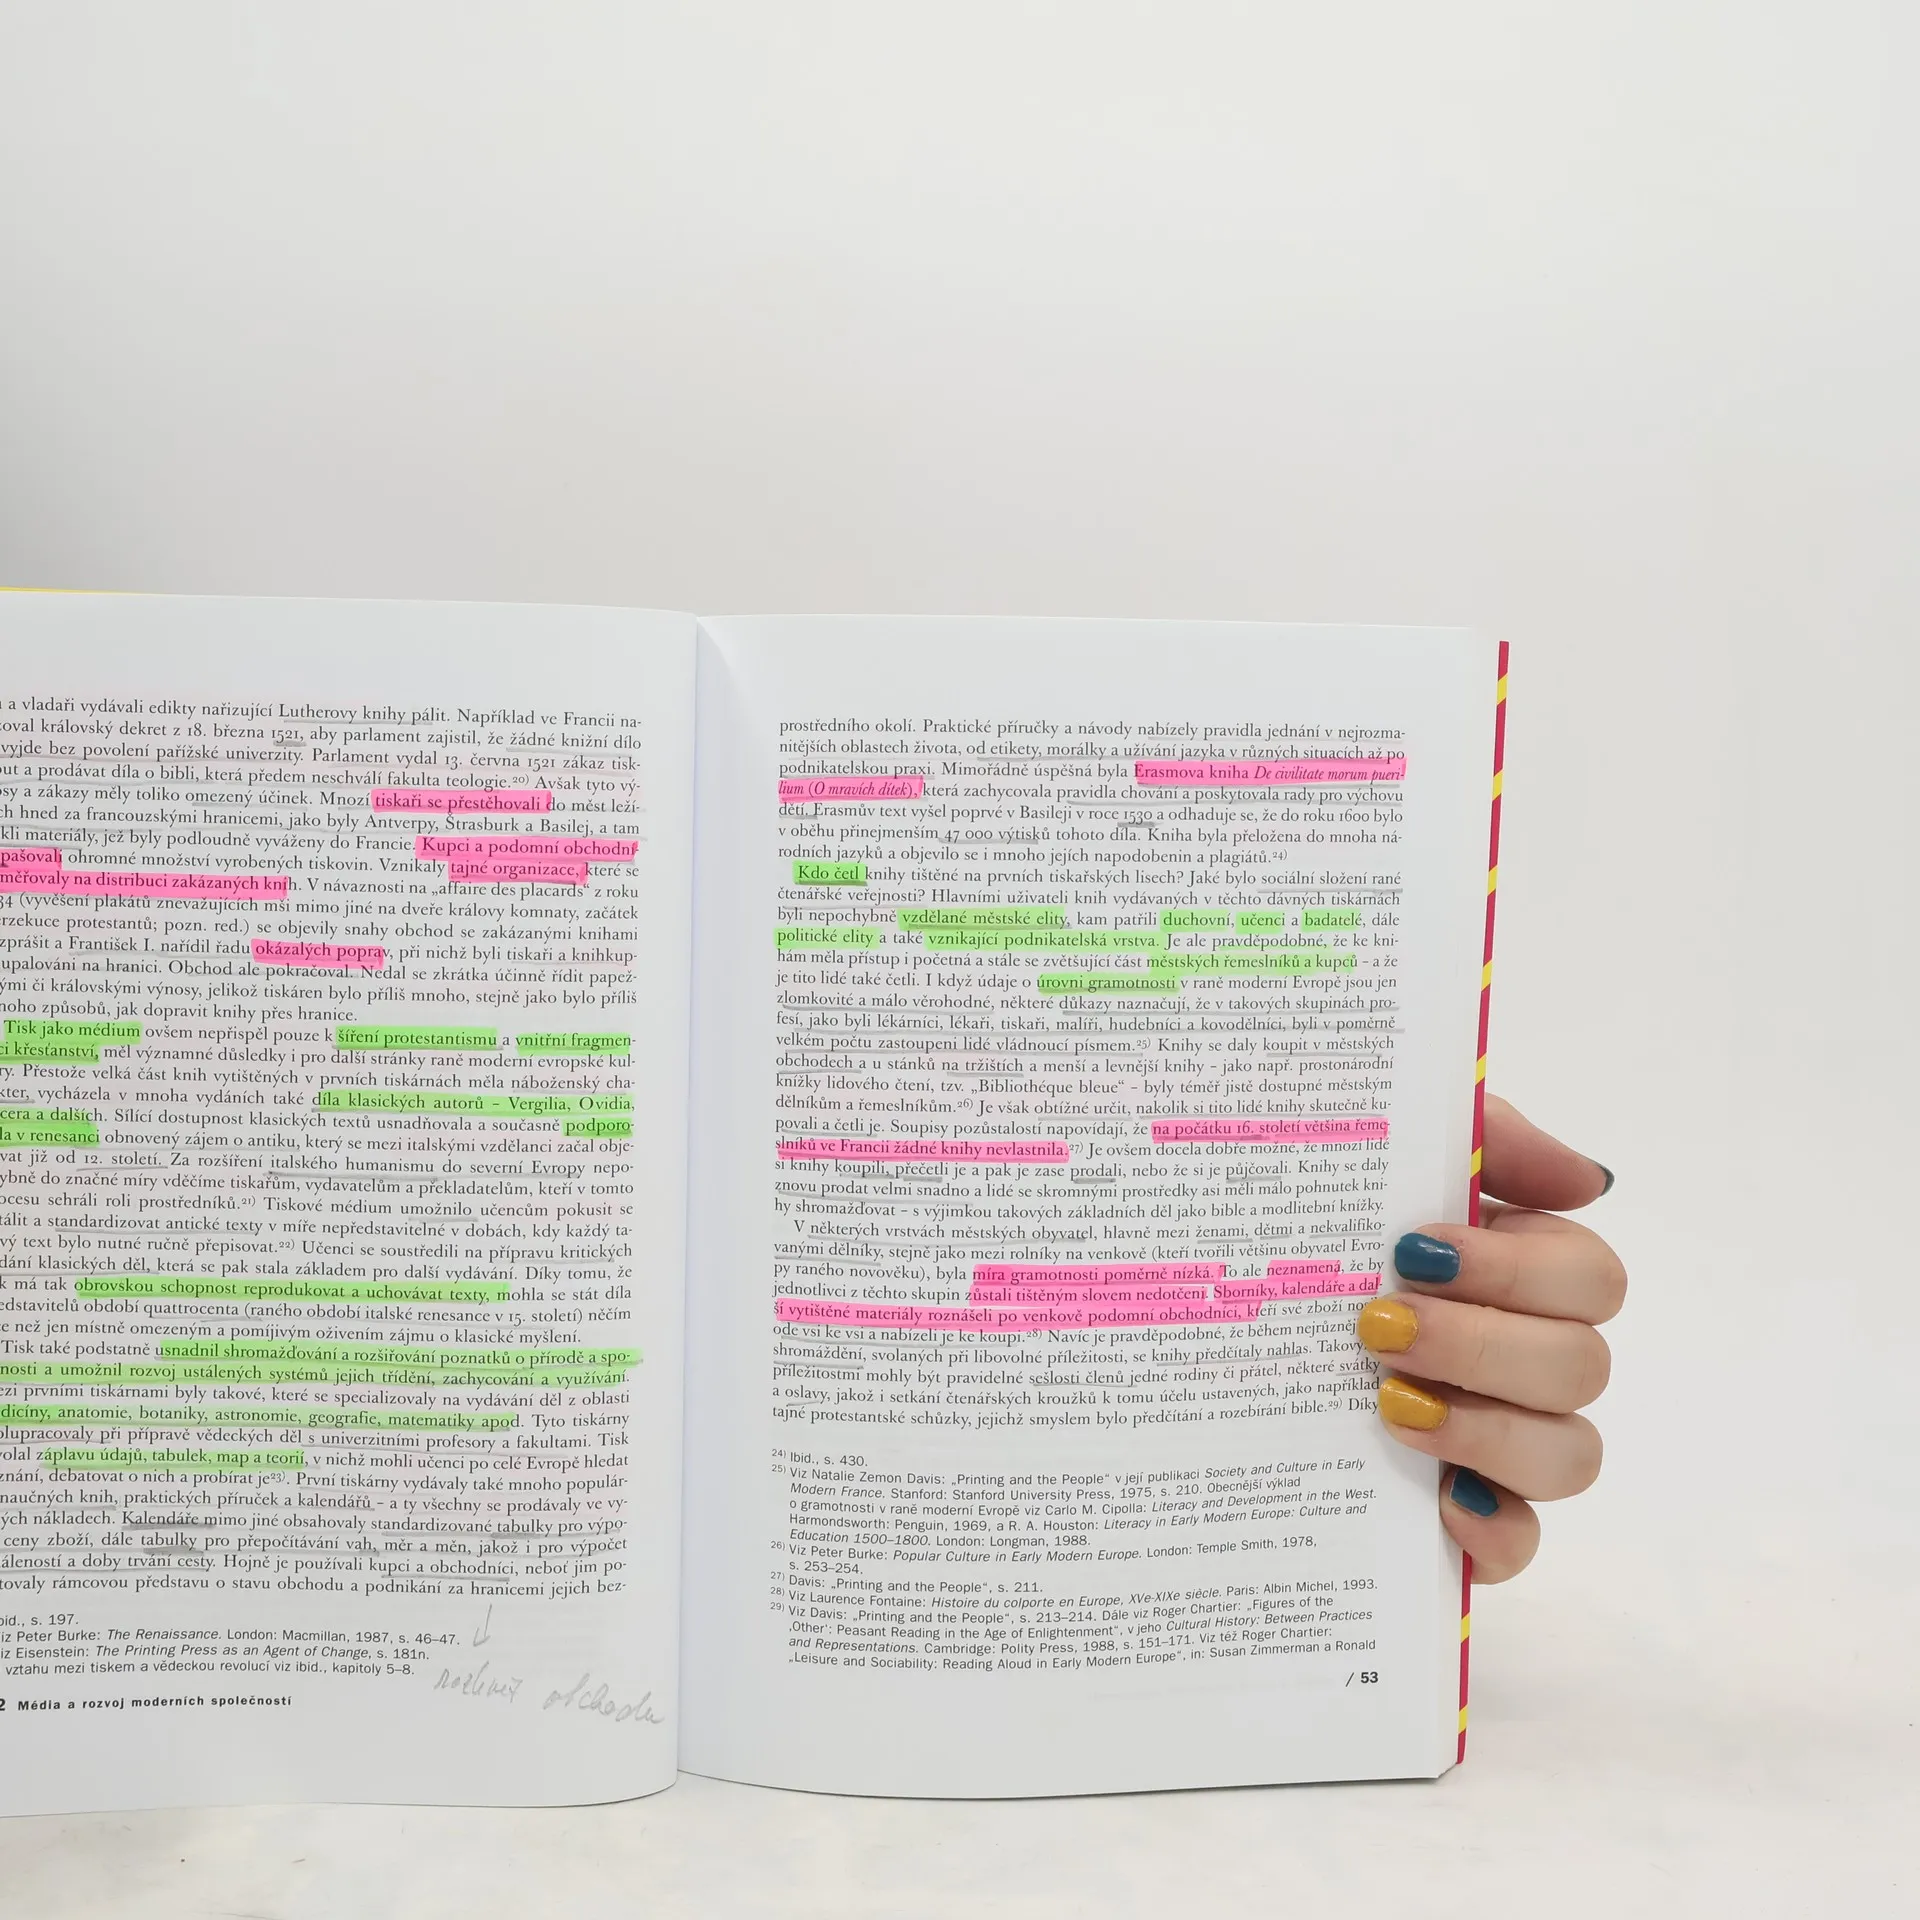 a vladaři vydávali edikty nařizující Lutherovy knihy pálit. Například ve Francii na-
královský dekret z 18. března 1521, aby parlament zajistil, že žádné knižní dílo
vyjde bez povolení pařížské univerzity. Parlament vydal 13. června 1521 zákaz tisk-
a prodávat díla o bibli, která předem neschválí fakulta teologie.²⁰⁾ Avšak tyto vý-
a zákazy měly toliko omezený účinek. Mnozí tiskaři se přestěhovali do měst leží-
hned za francouzskými hranicemi, jako byly Antverpy, Štrasburk a Basilej, a tam
materiály, jež byly podloudně vyváženy do Francie. Kupci a podomní obchodní-
pašovali ohromné množství vyrobených tiskovin. Vznikaly tajné organizace, které se
měřovaly na distribuci zakázaných knih. V návaznosti na „affaire des placards“ z roku
34 (vyvěšení plakátů znevažujících mši mimo jiné na dveře královy komnaty, začátek
rzekuce protestantů; pozn. red.) se objevily snahy obchod se zakázanými knihami
zprášit a František I. nařídil řadu okázalých poprav, při nichž byli tiskaři a knihkup-
upalováni na hranici. Obchod ale pokračoval. Nedal se zkrátka účinně řídit papež-
ými či královskými výnosy, jelikož tiskáren bylo příliš mnoho, stejně jako bylo příliš
noho způsobů, jak dopravit knihy přes hranice.
Tisk jako médium ovšem nepřispěl pouze k šíření protestantismu a vnitřní fragmen-
ci křesťanství, měl významné důsledky i pro další stránky raně moderní evropské kul-
ry. Přestože velká část knih vytištěných v prvních tiskárnách měla náboženský cha-
kter, vycházela v mnoha vydáních také díla klasických autorů – Vergilia, Ovidia,
cera a dalších. Sílící dostupnost klasických textů usnadňovala a současně podporo-
la v renesanci obnovený zájem o antiku, který se mezi italskými vzdělanci začal obje-
vat již od 12. století. Za rozšíření italského humanismu do severní Evropy nepo-
ybně do značné míry vděčíme tiskařům, vydavatelům a překladatelům, kteří v tomto
ocesu sehráli roli prostředníků.²¹⁾ Tiskové médium umožnilo učencům pokusit se
tálit a standardizovat antické texty v míře nepředstavitelné v dobách, kdy každý ta-
vý text bylo nutné ručně přepisovat.²²⁾ Učenci se soustředili na přípravu kritických
dání klasických děl, která se pak stala základem pro další vydávání. Díky tomu, že
k má tak obrovskou schopnost reprodukovat a uchovávat texty, mohla se stát díla
edstavitelů období quattrocenta (raného období italské renesance v 15. století) něčím
ce než jen místně omezeným a pomíjivým oživením zájmu o klasické myšlení.
Tisk také podstatně usnadnil shromažďování a rozšiřování poznatků o přírodě a spo-
nosti a umožnil rozvoj ustálených systémů jejich třídění, zachycování a využívání.
ezi prvními tiskárnami byly takové, které se specializovaly na vydávání děl z oblasti
dicíny, anatomie, botaniky, astronomie, geografie, matematiky apod. Tyto tiskárny
olupracovaly při přípravě vědeckých děl s univerzitními profesory a fakultami. Tisk
volal záplavu údajů, tabulek, map a teorií, v nichž mohli učenci po celé Evropě hledat
znání, debatovat o nich a probírat je²³⁾. První tiskárny vydávaly také mnoho populár-
naučných knih, praktických příruček a kalendářů – a ty všechny se prodávaly ve vy-
ých nákladech. Kalendáře mimo jiné obsahovaly standardizované tabulky pro výpo-
ceny zboží, dále tabulky pro přepočítávání vah, měr a měn, jakož i pro výpočet
áleností a doby trvání cesty. Hojně je používali kupci a obchodníci, neboť jim po-
tovaly rámcovou představu o stavu obchodu a podnikání za hranicemi jejich bez-
bid., s. 197.
iz Peter Burke: The Renaissance. London: Macmillan, 1987, s. 46–47.
iz Eisenstein: The Printing Press as an Agent of Change, s. 181n.
vztahu mezi tiskem a vědeckou revolucí viz ibid., kapitoly 5–8.
obchodu
2 Média a rozvoj moderních společností
prostředního okolí. Praktické příručky a návody nabízely pravidla jednání v nejrozma-
nitějších oblastech života, od etikety, morálky a užívání jazyka v různých situacích až po
podnikatelskou praxi. Mimořádně úspěšná byla Erasmova kniha De civilitate morum pueri-
lium (O mravích dítek), která zachycovala pravidla chování a poskytovala rady pro výchovu
dětí. Erasmův text vyšel poprvé v Basileji v roce 1530 a odhaduje se, že do roku 1600 bylo
v oběhu přinejmenším 47 000 výtisků tohoto díla. Kniha byla přeložena do mnoha ná-
rodních jazyků a objevilo se i mnoho jejích napodobenin a plagiátů.²⁴⁾
Kdo četl knihy tištěné na prvních tiskařských lisech? Jaké bylo sociální složení rané
čtenářské veřejnosti? Hlavními uživateli knih vydávaných v těchto dávných tiskárnách
byli nepochybně vzdělané městské elity, kam patřili duchovní, učenci a badatelé, dále
politické elity a také vznikající podnikatelská vrstva. Je ale pravděpodobné, že ke kni-
hám měla přístup i početná a stále se zvětšující část městských řemeslníků a kupců – a že
je tito lidé také četli. I když údaje o úrovni gramotnosti v raně moderní Evropě jsou jen
zlomkovité a málo věrohodné, některé důkazy naznačují, že v takových skupinách pro-
fesí, jako byli lékárníci, lékaři, tiskaři, malíři, hudebníci a kovodělníci, byli v poměrně
velkém počtu zastoupeni lidé vládnoucí písmem.²⁵⁾ Knihy se daly koupit v městských
obchodech a u stánků na tržištích a menší a levnější knihy – jako např. prostonárodní
knížky lidového čtení, tzv. „Bibliothéque bleue“ – byly téměř jistě dostupné městským
dělníkům a řemeslníkům.²⁶⁾ Je však obtížné určit, nakolik si tito lidé knihy skutečně ku-
povali a četli je. Soupisy pozůstalostí napovídají, že na počátku 16. století většina řeme-
slníků ve Francii žádné knihy nevlastnila.²⁷⁾ Je ovšem docela dobře možné, že mnozí lidé
si knihy koupili, přečetli je a pak je zase prodali, nebo že si je půjčovali. Knihy se daly
znovu prodat velmi snadno a lidé se skromnými prostředky asi měli málo pohnutek kni-
hy shromažďovat – s výjimkou takových základních děl jako bible a modlitební knížky.
V některých vrstvách městských obyvatel, hlavně mezi ženami, dětmi a nekvalifiko-
vanými dělníky, stejně jako mezi rolníky na venkově (kteří tvořili většinu obyvatel Evro-
py raného novověku), byla míra gramotnosti poměrně nízká. To ale neznamená, že by
jednotlivci z těchto skupin zůstali tištěným slovem nedotčeni. Sborníky, kalendáře a dal-
ší vytištěné materiály roznášeli po venkově podomní obchodníci, kteří své zboží
ode vsi ke vsi a nabízeli je ke koupi.²⁸⁾ Navíc je pravděpodobné, že během nejrůzněj
shromáždění, svolaných při libovolné příležitosti, se knihy předčítaly nahlas. Takový
příležitostmi mohly být pravidelné sešlosti členů jedné rodiny či přátel, některé svátky
a oslavy, jakož i setkání čtenářských kroužků k tomu účelu ustavených, jako například
tajné protestantské schůzky, jejichž smyslem bylo předčítání a rozebírání bible.²⁹⁾ Díky
²⁴⁾ Ibid., s. 430.
²⁵⁾ Viz Natalie Zemon Davis: „Printing and the People“ v její publikaci Society and Culture in Early
Modern France. Stanford: Stanford University Press, 1975, s. 210. Obecnější výklad
o gramotnosti v raně moderní Evropě viz Carlo M. Cipolla: Literacy and Development in the West.
Harmondsworth: Penguin, 1969, a R. A. Houston: Literacy in Early Modern Europe: Culture and
Education 1500–1800. London: Longman, 1988.
²⁶⁾ Viz Peter Burke: Popular Culture in Early Modern Europe. London: Temple Smith, 1978,
s. 253–254.
²⁷⁾ Davis: „Printing and the People“, s. 211.
²⁸⁾ Viz Laurence Fontaine: Histoire du colporte en Europe, XVe-XIXe siècle. Paris: Albin Michel, 1993.
²⁹⁾ Viz Davis: „Printing and the People“, s. 213–214. Dále viz Roger Chartier: „Figures of the
‚Other‘: Peasant Reading in the Age of Enlightenment“, v jeho Cultural History: Between Practices
and Representations. Cambridge: Polity Press, 1988, s. 151–171. Viz též Roger Chartier:
„Leisure and Sociability: Reading Aloud in Early Modern Europe“, in: Susan Zimmerman a Ronald
/ 53